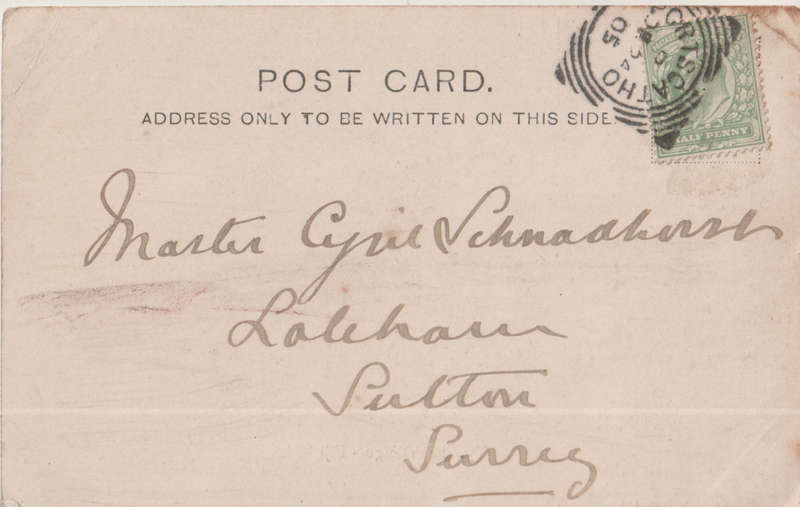 POST CARD.
ADDRESS ONLY TO BE WRITTEN ON THIS SIDE.
PORTSCATHO
05
HALF PENNY
Master Cyril Schnadhorst
Sutton
Surrey